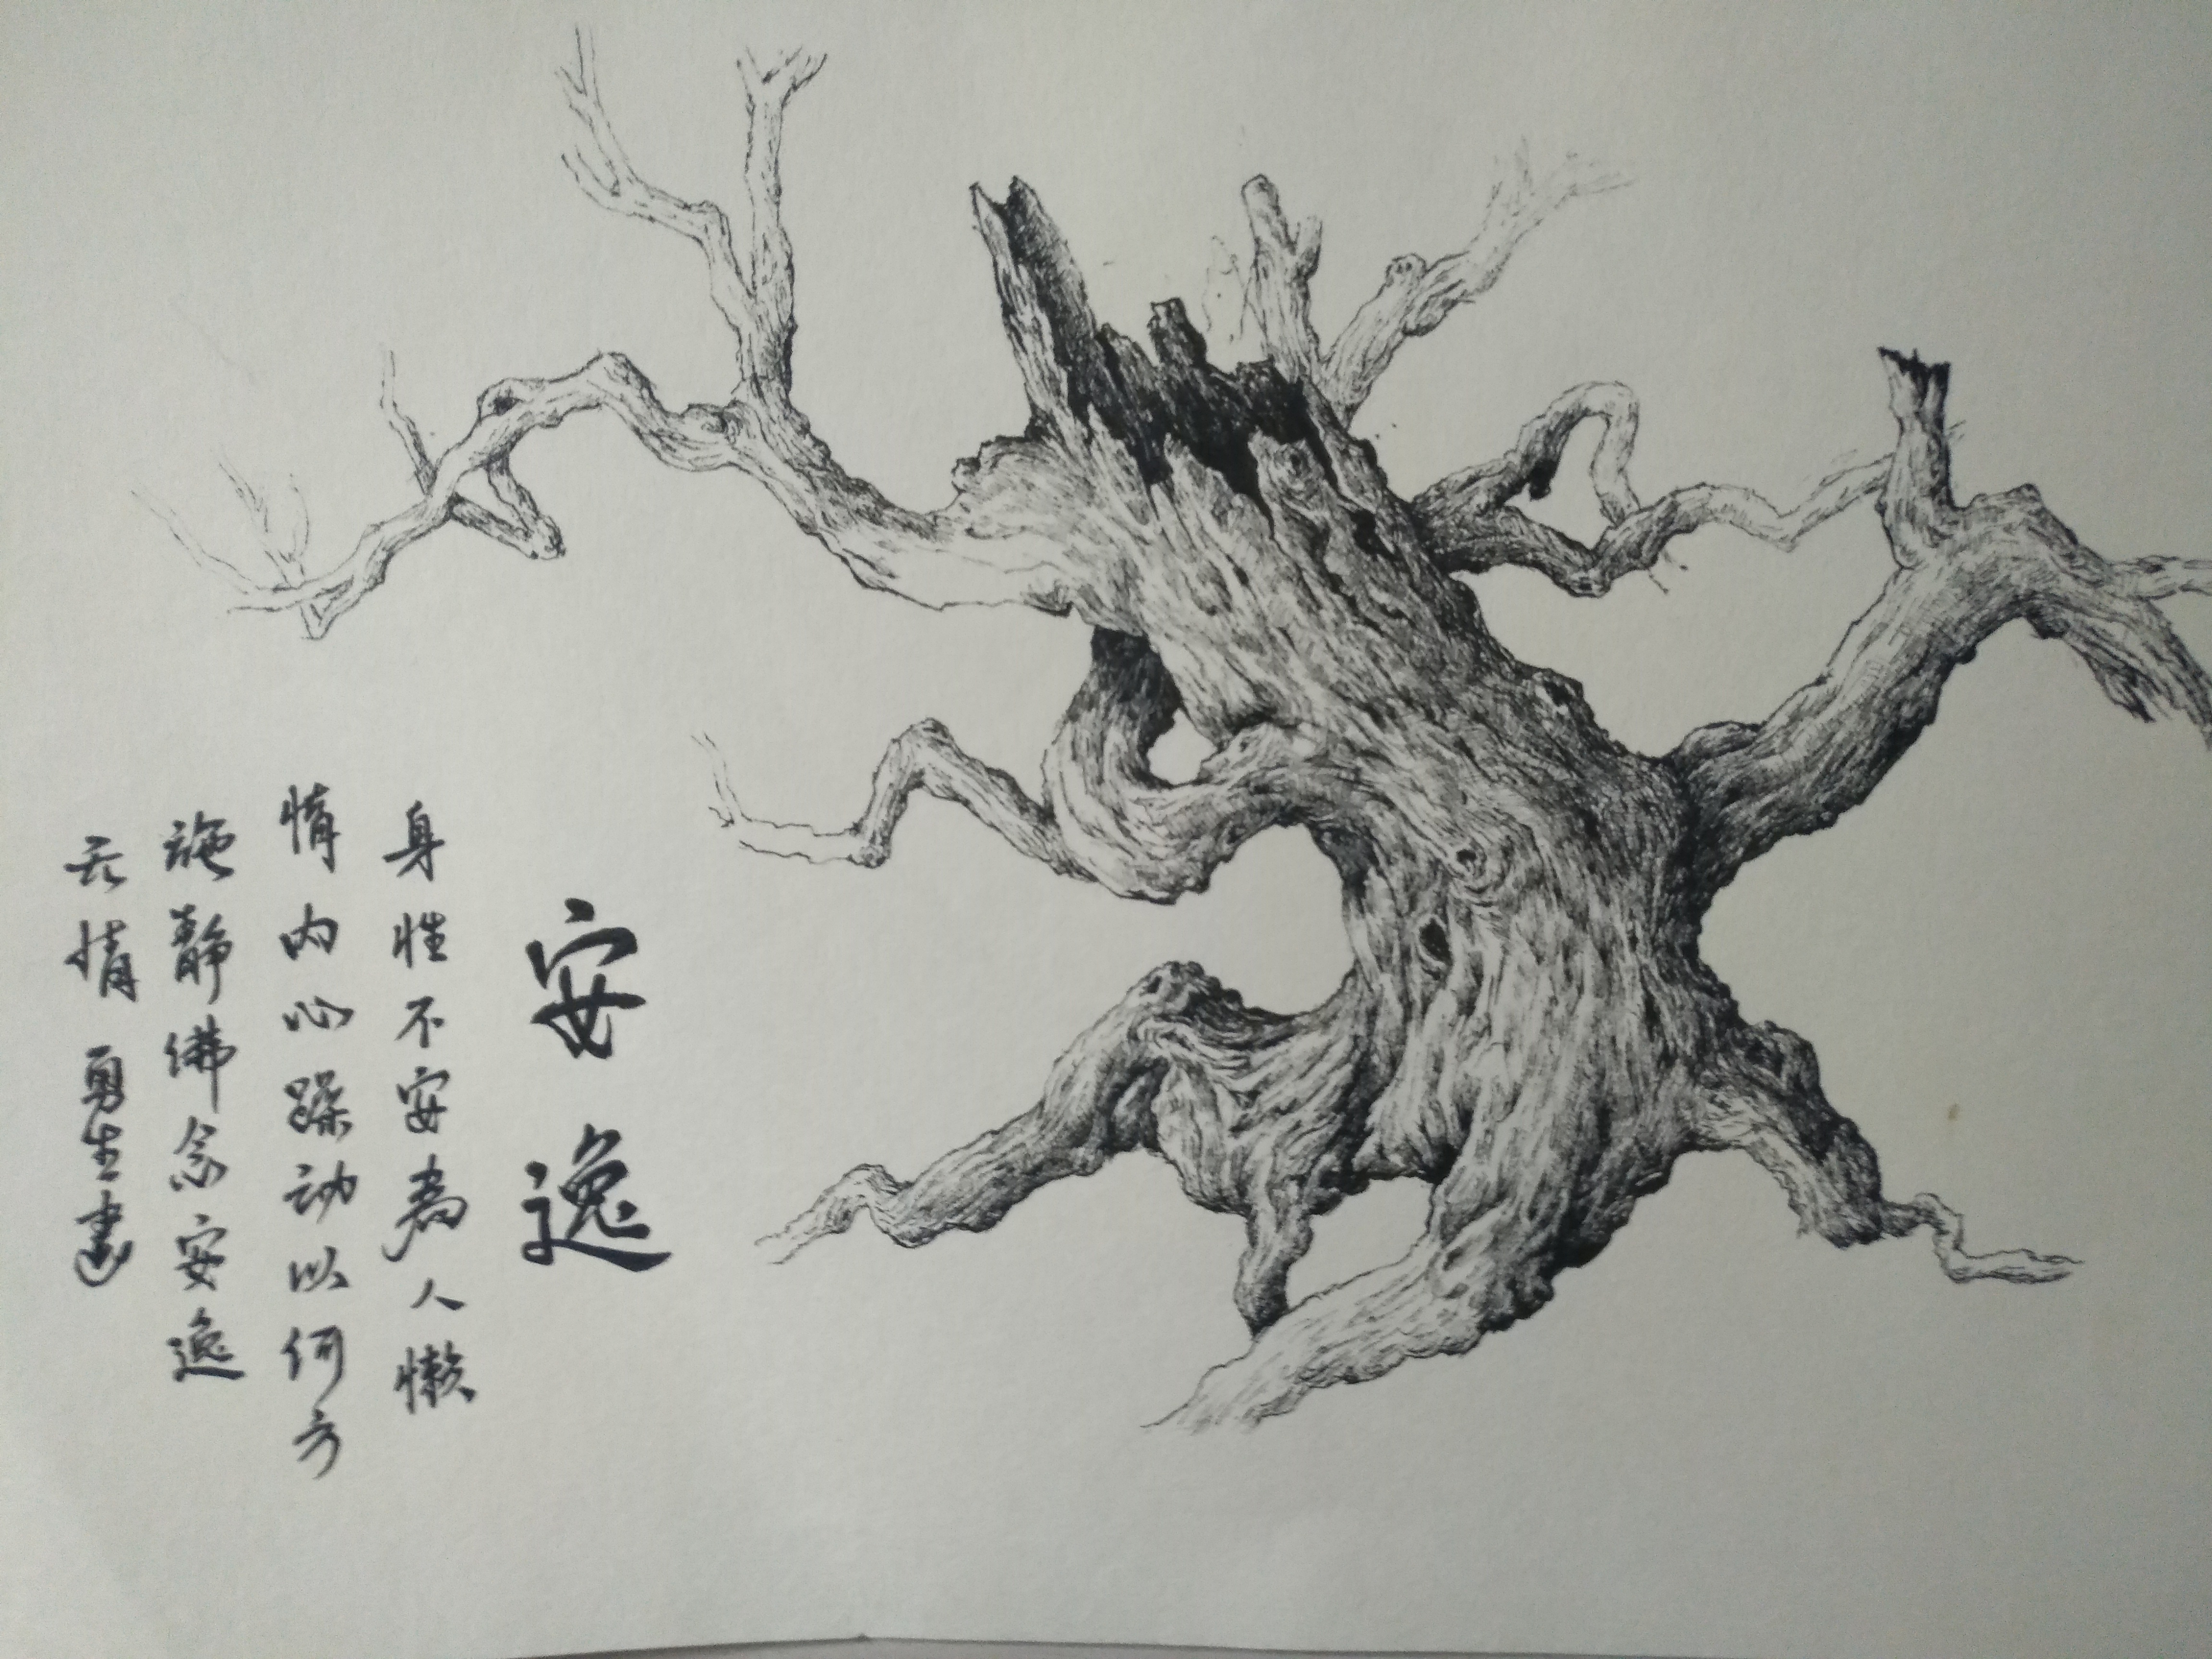 安逸
身性不安為人懒
惰内心躁动以何方
施静佛念安逸
无惰 勇生書